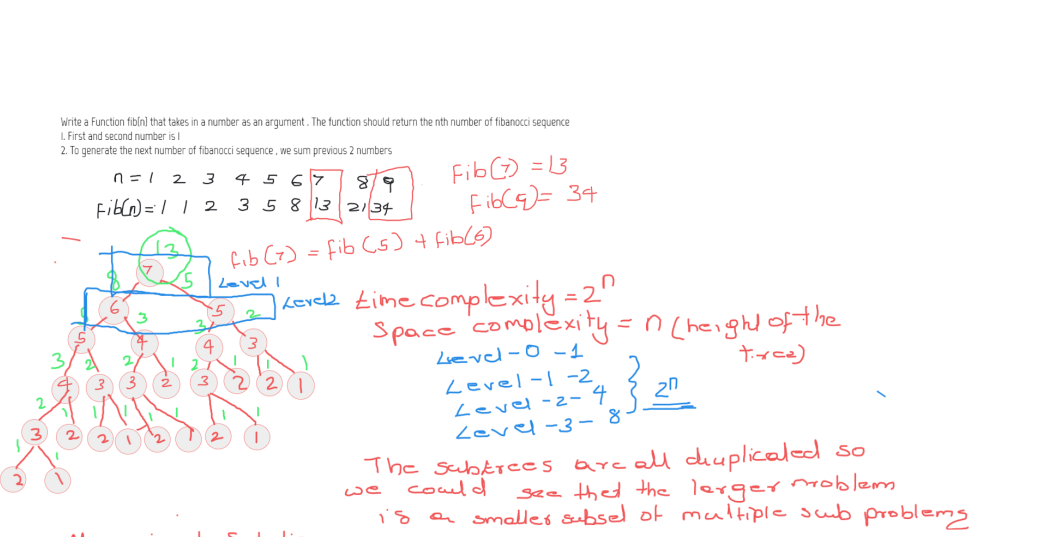 Write a Function fib(n) that takes in a number as an argument . The function should return the nth number of fibanocci sequence
1. First and second number is 1
2. To generate the next number of fibanocci sequence , we sum previous 2 numbers
n = 1 2 3 4 5 6 7 8 9
Fib(n) = 1 1 2 3 5 8 13 21 34
Fib(7) = 13
Fib(9) = 34
fib(7) = fib(5) + fib(6)
13
7
8 5
Level 1
6 5
Level2
3 3 2
5 4 4 3
3 2 2 1 2 1 1 1
4 3 3 2 3 2 2 1
2 1 1 1 1 1 1 1
3 2 2 1 2 1 2 1
1 1
2 1
time complexity = 2^n
Space complexity = n (height of the
tree)
Level-0-1
Level-1-2
Level-2-4
Level-3-8
2^n
The subtrees are all duplicated so
we could see that the larger problem
is a smaller subset of multiple sub problems